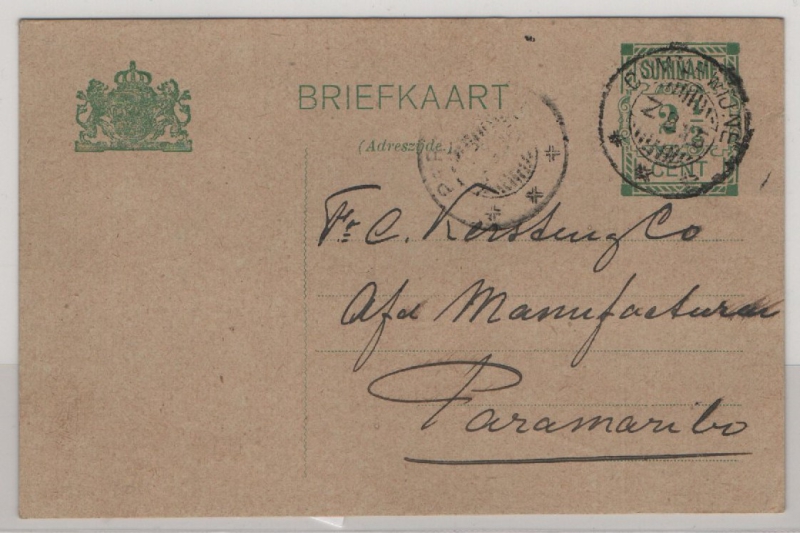 BRIEFKAART
(Adreszijde.)
SURINAME
2½
CENT
Fr. C. Kersten & Co
Afd Manufacturen
Paramaribo